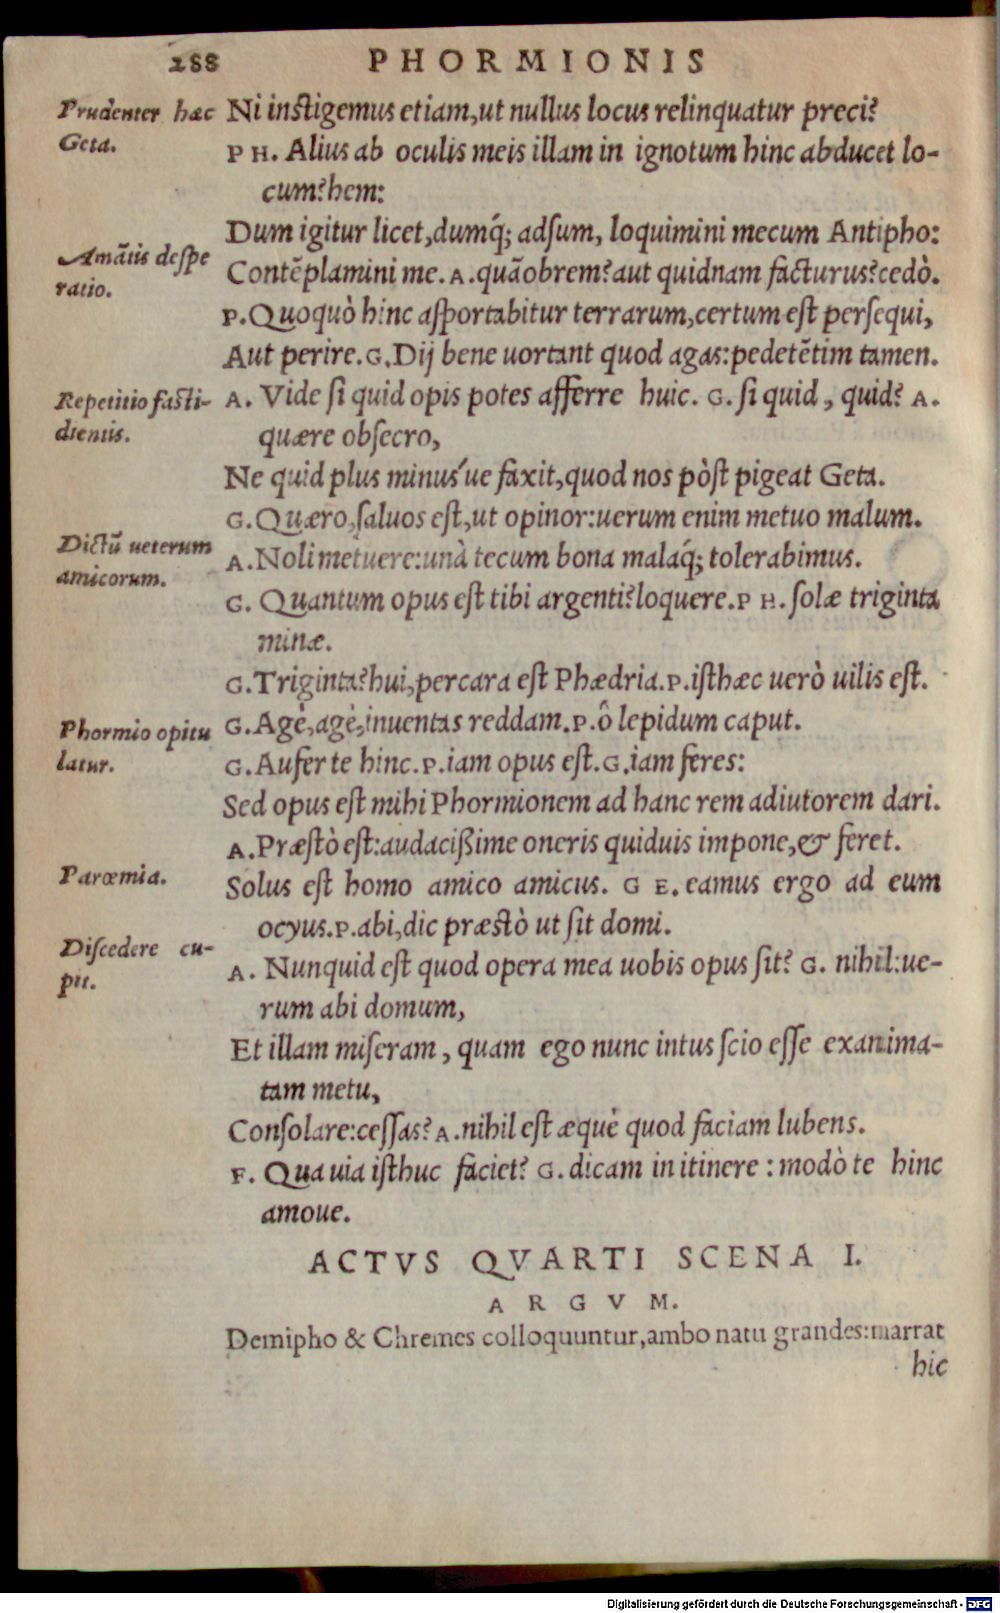 288 PHORMIONIS
Prudenter hæc
Geta.
Ni instigemus etiam, ut nullus locus relinquatur preci?
PH. Alius ab oculis meis illam in ignotum hinc abducet lo-
cum? hem:
Dum igitur licet, dumq́; adsum, loquimini mecum Antipho:
Amãtis despe
ratio.
Contẽplamini me. A. quãobrem? aut quidnam facturus? cedò.
P. Quoquò hinc asportabitur terrarum, certum est persequi,
Aut perire. G. Dij bene uortant quod agas: pedetẽtim tamen.
Repetitio fasti-
dientis.
A. Vide si quid opis potes afferre huic. G. si quid, quid? A.
quære obsecro,
Ne quid plus minus´ue faxit, quod nos pòst pigeat Geta.
G. Quæro, saluos est, ut opinor: uerum enim metuo malum.
Dictũ ueterum
amicorum.
A. Noli metuere: unà tecum bona malaq́; tolerabimus.
G. Quantum opus est tibi argenti? loquere. PH. solæ triginta
minæ.
G. Triginta? hui, percara est Phædria. P. isthæc uerò uilis est.
Phormio opitu
latur.
G. Agè, agè, inuentas reddam. P. ô lepidum caput.
G. Aufer te hinc. P. iam opus est. G. iam feres:
Sed opus est mihi Phormionem ad hanc rem adiutorem dari.
A. Præstò est: audacißime oneris quiduis impone, & feret.
Parœmia.
Solus est homo amico amicus. GE. eamus ergo ad eum
ocyus. P. abi, dic præstò ut sit domi.
Discedere cu-
pit.
A. Nunquid est quod opera mea uobis opus sit? G. nihil: ue-
rum abi domum,
Et illam miseram, quam ego nunc intus scio esse exanima-
tam metu,
Consolare: cessas? A. nihil est æquè quod faciam lubens.
F. Qua uia isthuc faciet? G. dicam in itinere: modò te hinc
amoue.
ACTVS QVARTI SCENA I.
ARGVM.
Demipho & Chremes colloquuntur, ambo natu grandes: narrat
hic
Digitalisierung gefördert durch die Deutsche Forschungsgemeinschaft - DFG